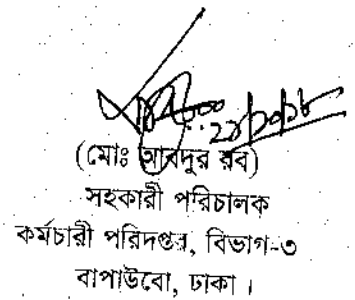 ২১/১০/১৮
(মোঃ আবদুর রব)
সহকারী পরিচালক
কর্মচারী পরিদপ্তর, বিভাগ-৩
বাপাউবো, ঢাকা।